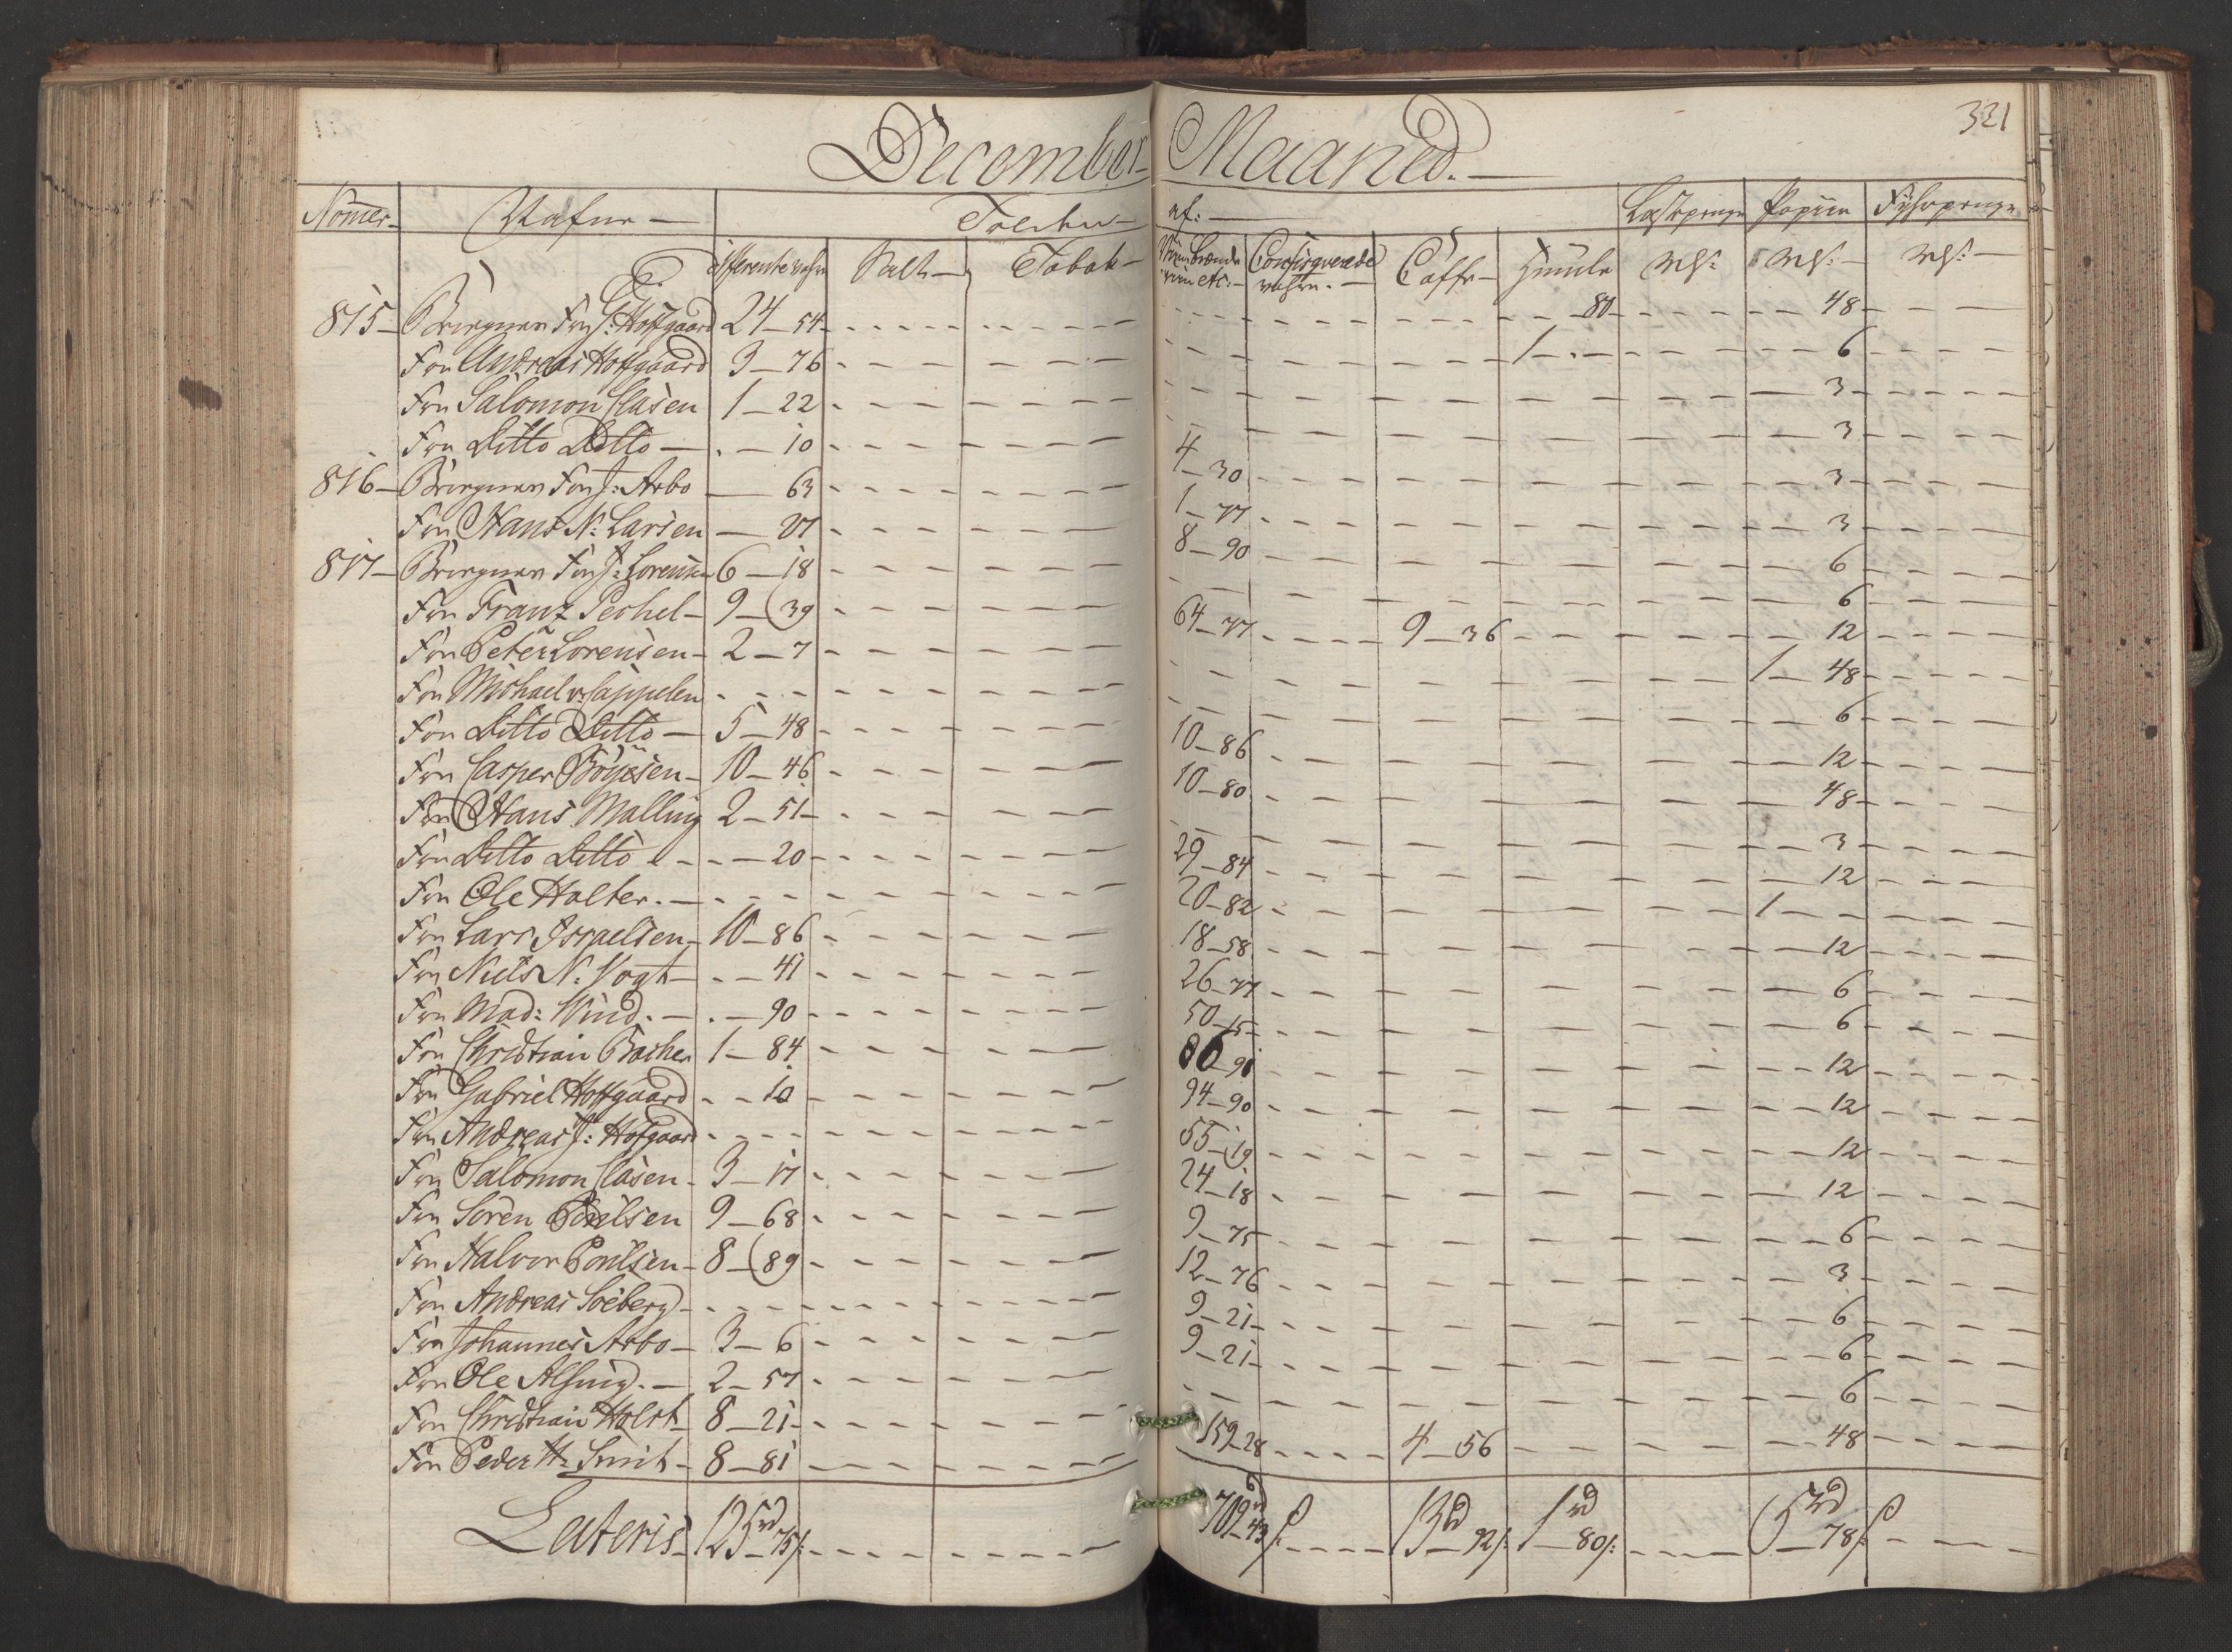 321
December Maaned.
Nomer Nafne Tolden af: Lastpenge Papiir Fyhrpenge
Differente vahre Salt Tabak Viin Brændeviin etc: Confisqverede vahre. Caffe Humle rdls: rdls: rdls:
815 Bringeren For G: Hoffgaard 24 54 80 48
For Andreas Hoffgaard 3 76 1 6
For Salomon Clasen 1 22 3
For Ditto Ditto 10 3
816 Bringeren For J: Arbo 63 4 30 3
For Hans N: Larsen 27 1 77 3
817 Bringeren For J: Lorensen 6 18 8 90 6
For Franz Pechel 9 39 6
For Peter Lorensen 2 7 64 77 9 36 12
For Michael v: Cappelen 1 48
For Ditto Ditto 5 48 6
For Casper Böyesen 10 46 10 86 12
For Hans Malling 2 51 10 80 48
For Ditto Ditto 20 3
For Ole Holter. 29 84 12
For Lars Israelsen 10 86 20 82 1
For Niels N: Vogt 41 18 58 12
For Mad: Wind. 90 26 77 6
For Christian Bacher 1 84 50 15 6
For Gabriel Hoffgaard 10 86 90 12
For Andreas J: Hofgaard 94 90 12
For Salomon Clasen 3 17 55 19 12
For Sören Poulsen 9 68 24 18 12
For Halvor Poulsen 8 89 9 75 6
For Andreas Soëberg 12 76 3
For Johannes Arbo 3 6 9 21 6
For Ole Alsing. 2 57 9 21 6
For Christian Holst 8 21 6
For Peder H: Smit 8 81 159 28 4 56 48
Lateris 125rd 75s: 709rd 43s 13rd 92s: 1rd 80s: 5rd 78s: